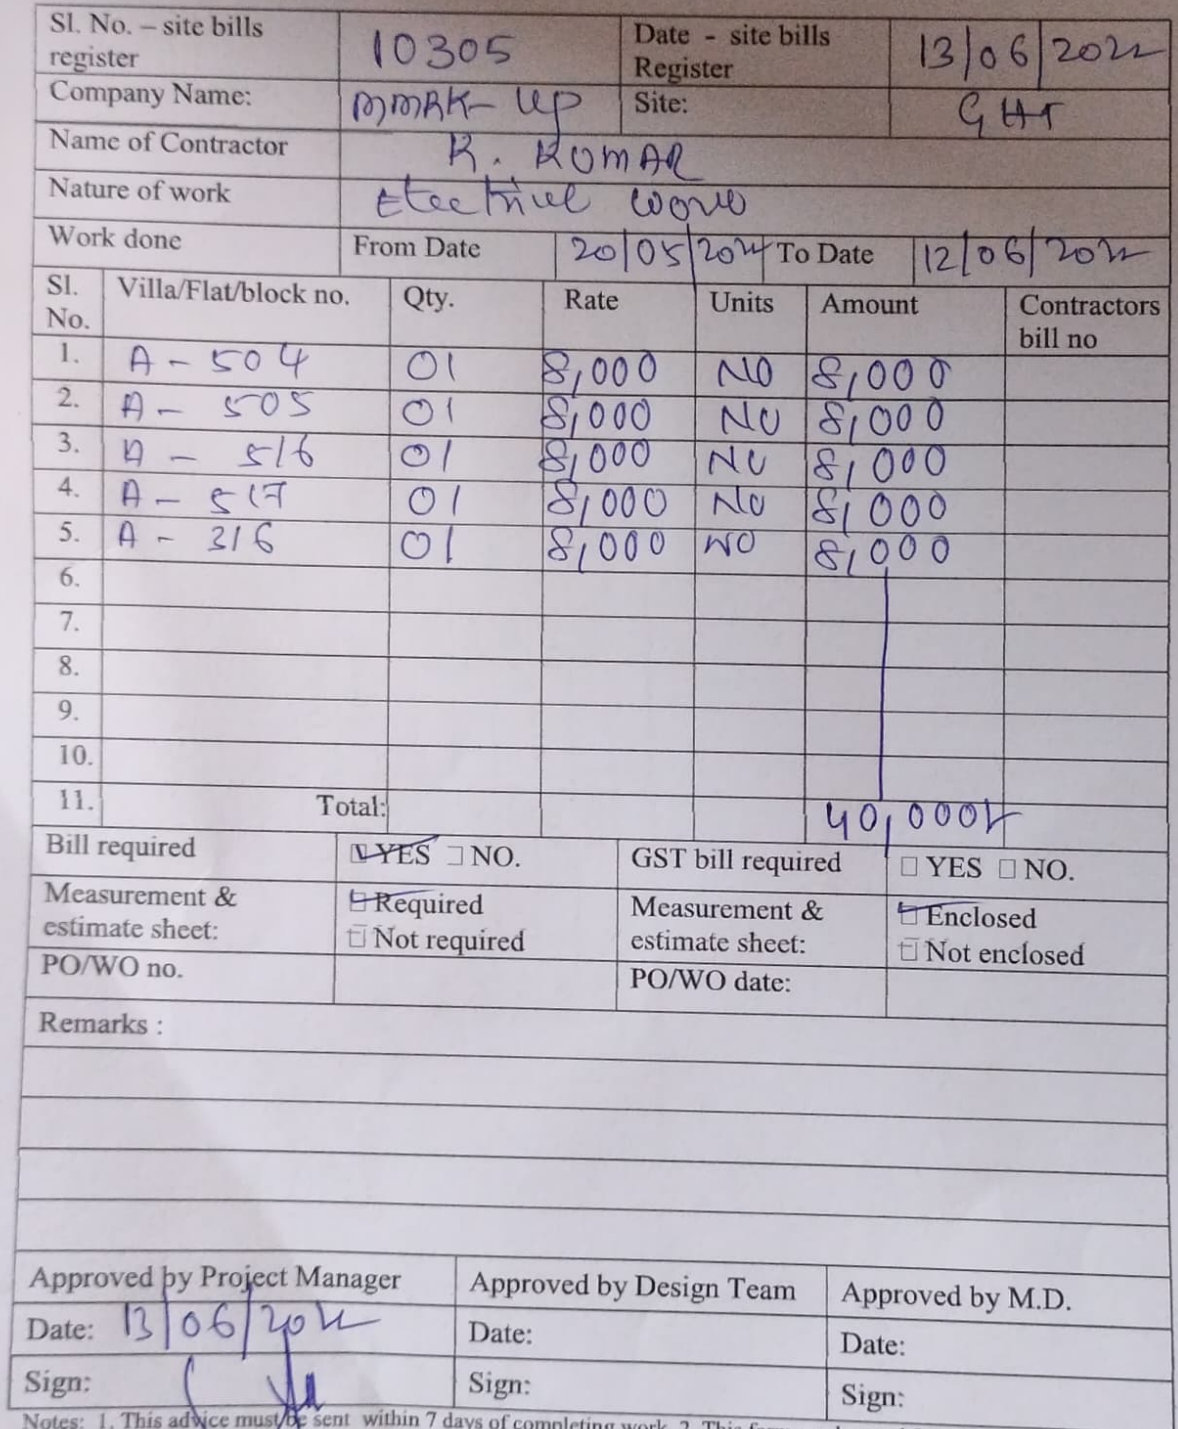 Sl. No. – site bills register 10305 Date - site bills Register 13/06/2022
Company Name: MMRK-UP Site: GHT
Name of Contractor K. KUMAR
Nature of work Electricel work
Work done From Date 20/05/2022 To Date 12/06/2022
Sl. No. Villa/Flat/block no. Qty. Rate Units Amount Contractors bill no
1. A - 504 01 8,000 NO 8,000
2. A - 505 01 8,000 NO 8,000
3. A - 516 01 8,000 NO 8,000
4. A - 517 01 8,000 NO 8,000
5. A - 316 01 8,000 NO 8,000
6.
7.
8.
9.
10.
11. Total: 40,000/-
Bill required ☑ YES ☐ NO. GST bill required ☐ YES ☐ NO.
Measurement & estimate sheet: ☑ Required ☐ Not required Measurement & estimate sheet: ☑ Enclosed ☐ Not enclosed
PO/WO no. PO/WO date:
Remarks :
Approved by Project Manager Approved by Design Team Approved by M.D.
Date: 13/06/2022 Date: Date:
Sign: Sign: Sign:
Notes: 1. This advice must be sent within 7 days of completing work. 2. This